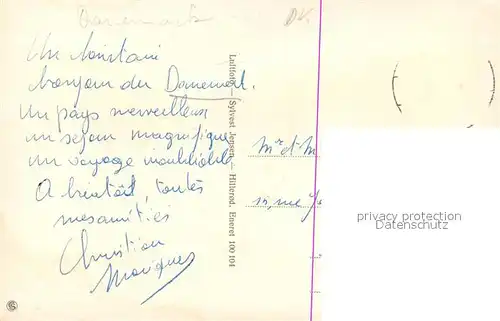 Danemark
DK
Un lointain
bonjour du Danemark.
Un pays merveilleux
un séjour magnifique
Un voyage inoubliable
A bientôt, toutes
mes amitiés
Christian
Luftfoto — Sylvest Jensen — Hillerød. Eneret 100 104
Mr et M
privacy protection
VM